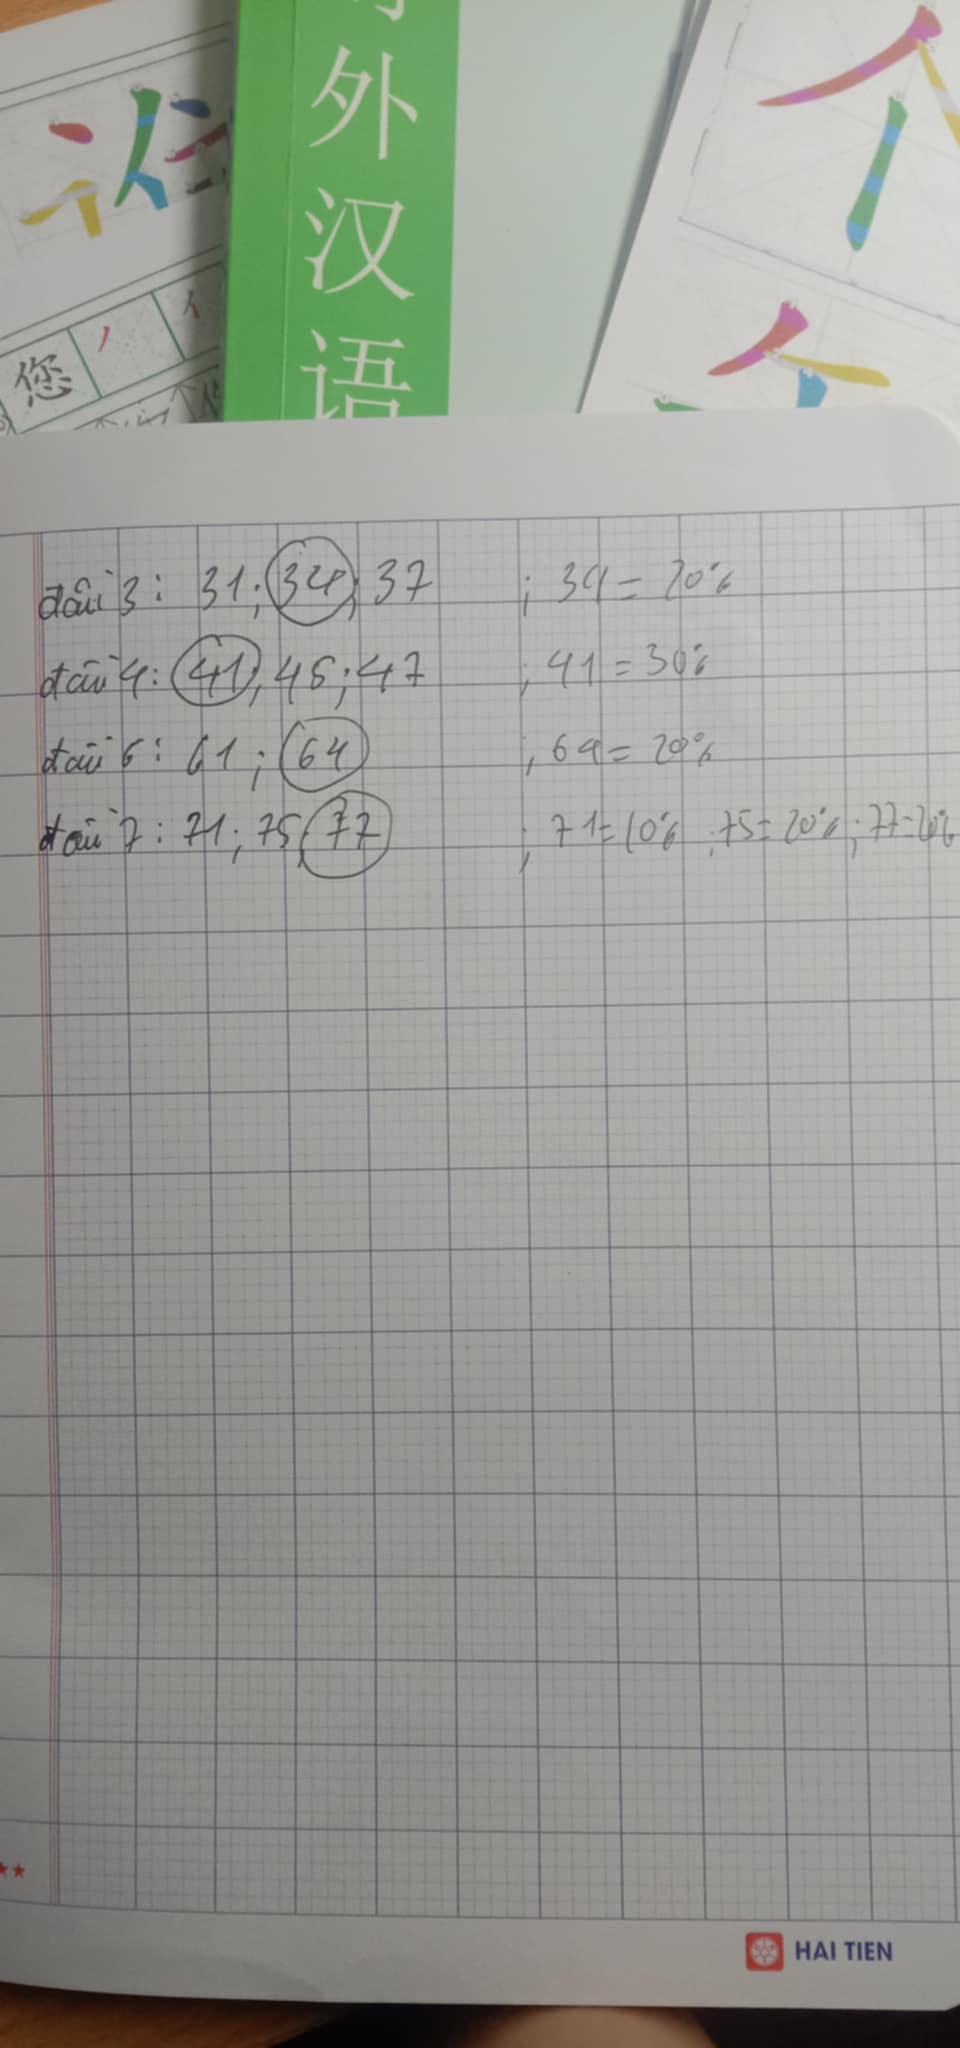 外汉语
您
đầu 3: 31; 34; 37 ; 34 = 20%
đầu 4: 41; 45; 47 ; 41 = 30%
đầu 6: 61; 64 ; 64 = 20%
đầu 7: 71; 75, 77 ; 71 = 10% ; 75 = 20% ; 77 = 20%
HAI TIEN